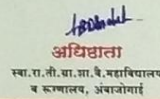 अधिष्ठाता
स्वा.रा.ती.ग्रा.शा.वै.महाविद्यालय
व रूग्णालय, अंबाजोगाई